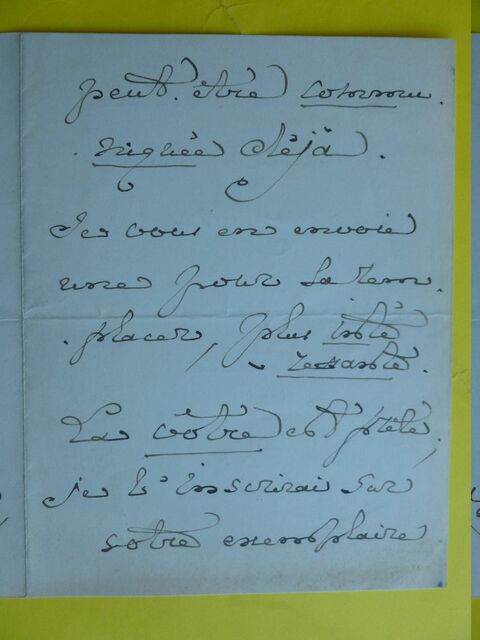 peut être commu-
niquée déjà.
Je vous en envoie
une pour la rem-
placer, plus inté
ressante.
La vôtre est prête,
je l'inscrirai sur
votre exemplaire